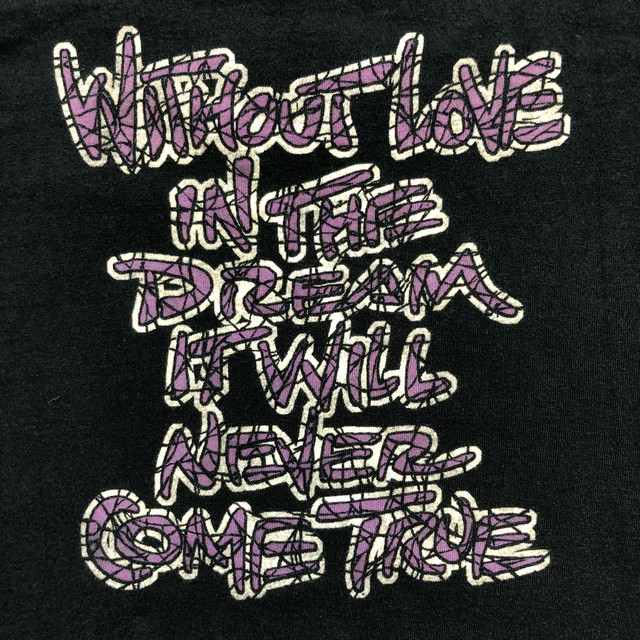 WITHOUT LOVE
IN THE
DREAM
IT WILL
NEVER
COME TRUE